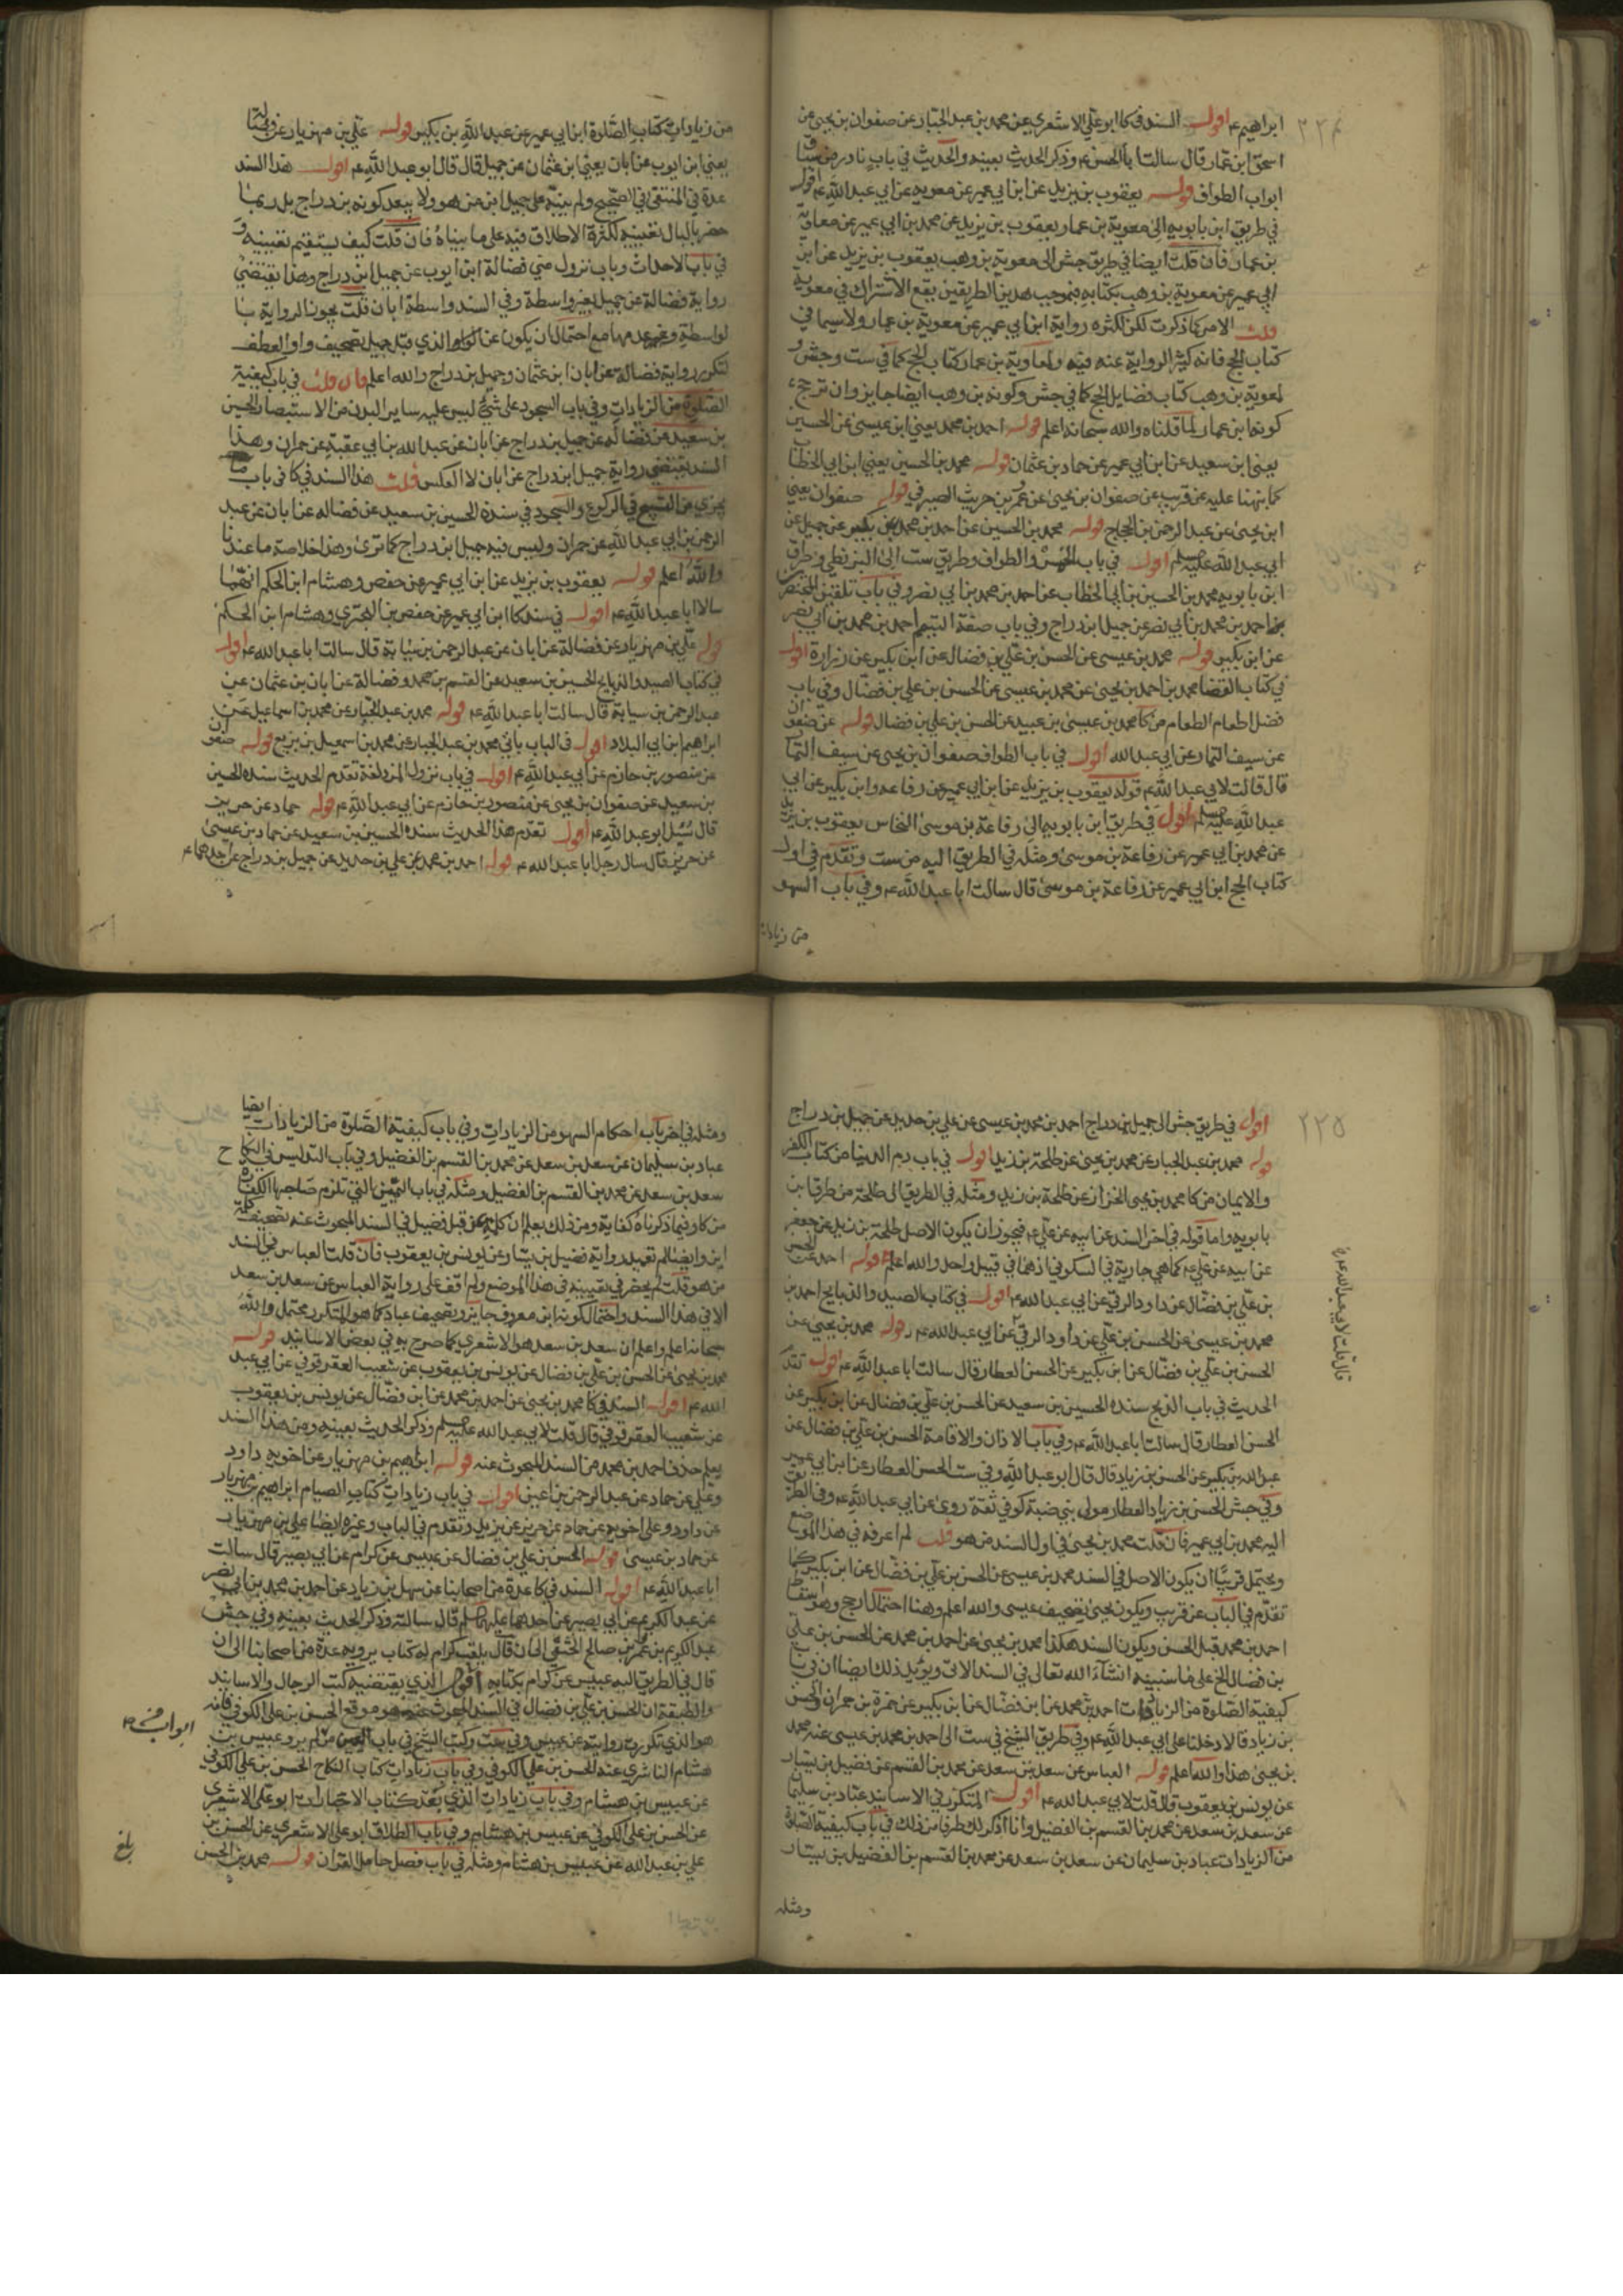 ٢٢٤
ابراهيم ع اقول السند في كا ابو علي الاشعري عن محمد بن عبد الجبار عن صفوان بن يحيى عن
اسحق ابن عمار قال سالت ابا الحسن ع وذكر الحديث بعينه والحديث في باب نادر من
ابواب الطواف قوله يعقوب بن يزيد عن ابن ابي عمير عن معوية عن ابي عبد الله ع اقول
في طريق ابن بابويه الى معوية بن عمار يعقوب بن يزيد عن محمد بن ابي عمير عن معاوية
بن عمار فان قلت ايضا في طريق جش الى معوية بن وهب يعقوب بن يزيد عن ابن
ابي عمير عن معوية بن وهب بكتابه فبموجب هذين الطريقين يقع الاشتراك في معوية
قلت الامر كما ذكرت لكن لكثرة رواية ابن ابي عمير عن معوية بن عمار ولا سيما في
كتاب الحج فانه كثير الرواية عنه فيه ولمعاوية بن عمار كتاب الحج كما في ست وجش و
لمعوية بن وهب كتاب فضايل الحج كما في جش وكونه بن وهب ايضا جايز وان ترجح
كونه ابن عمار لما قلناه والله سبحانه اعلم قوله احمد بن محمد يعني ابن عيسى عن الحسين
يعني ابن سعيد عن ابن ابي عمير عن حماد بن عثمان قوله محمد بن الحسين يعني ابن ابي الخطاب
كما نبهنا عليه عن قريب عن صفوان بن يحيى عن عمرو بن حريث الصيرفي قوله صفوان يعني
ابن يحيى عن عبد الرحمن بن الحجاج قوله محمد بن الحسين عن احمد بن محمد عن بكير عن جميل عن
ابي عبد الله عليه السلم اقول في باب والطواف وطريق ست الى البزنطي وطرق
ابن بابويه محمد بن الحسين بن ابي الخطاب عن احمد بن محمد بن ابي نصر وفي باب تلقين المحتضرين
عن احمد بن محمد بن ابي نصر عن جميل ابن دراج وفي باب صفة التيمم احمد بن محمد بن ابي نصر
عن ابن بكير قوله محمد بن عيسى عن الحسن بن علي بن فضال عن ابن بكير عن زرارة اقول
في كتاب القضا محمد بن احمد بن يحيى عن محمد بن عيسى عن الحسن بن علي بن فضال وفي باب
فضل اطعام الطعام من كا محمد بن عيسى بن عبيد عن الحسن بن علي بن فضال قوله عن صفوان
عن سيف التمار عن ابي عبد الله اقول في باب الطواف صفوان بن يحيى عن سيف التمار
قال قلت لابي عبد الله ع قوله يعقوب بن يزيد عن ابن ابي عمير عن رفاعه وابن بكير عن ابي
عبد الله عليه السلم اقول في طريق ابن بابويه الى رفاعة بن موسى النخاس يعقوب بن يزيد
عن محمد بن ابي عمير عن رفاعة بن موسى ومثله في الطريق اليه من ست وتقدم في اول
كتاب الحج ابن ابي عمير عن رفاعة بن موسى قال سالت ابا عبد الله ع وفي باب السهو
من زيادات
من زيادات كتاب الصلوة ابن ابي عمير عن عبد الله بن بكير قوله علي بن مهزيار عن فضالة
يعني ابن ايوب عن ابان يعني ابن عثمان عن جميل قال قال ابو عبد الله ع اقول هذا السند
عدة في المنتقى في الصحيح ولم ينبه على جميل ابن من هو ولا يبعد كونه بن دراج بل ربما
حضر بالبال تعيينه لكثرة الاطلاق فيه على ما بيناه فان قلت كيف يستقيم تعيينه و
في باب الاحداث وباب نزول منى فضالة ابن ايوب عن جميل ابن دراج وهذا يقتضي
رواية فضالة عن جميل بغير واسطة وفي السند واسطة ابان قلت يجوز الرواية با
لواسطة وعدمها مع احتمال ان يكون عن الواو الذي قبل جميل تصحيف واو العطف
لتكرر رواية فضالة عن ابان ابن عثمان وجميل بن دراج والله اعلم فان قلت في باب كيفية
الصلوة من الزيادات وفي باب السجود على شيء ليس عليه ساير البدن من الاستبصار الحسين
بن سعيد عن فضالة عن جميل بن دراج عن ابان عن عبد الله بن ابي عقبة عن حمران وهذا
السند يقتضي رواية جميل ابن دراج عن ابان لا العكس قلت هذا السند في كا في باب ما
يجزي من التسبيح في الركوع والسجود في سنده الحسين بن سعيد عن فضالة عن ابان عن عبد
الرحمن بن ابي عبد الله عن حمران وليس فيه جميل ابن دراج كما ترى وهذا خلاصة ما عندنا
والله اعلم قوله يعقوب بن يزيد عن ابن ابي عمير عن حفص وهشام ابن الحكم انهما
سالا ابا عبد الله ع اقول في سند كا ابن ابي عمير عن حفص بن البختري وهشام ابن الحكم
قوله علي بن مهزيار عن فضالة عن ابان عن عبد الرحمن بن سيابة قال سالت ابا عبد الله ع اقول
في كتاب الصيد والذبايح الحسين بن سعيد عن القسم بن محمد وفضالة عن ابان بن عثمان عن
عبد الرحمن بن سيابة قال سالت ابا عبد الله ع قوله محمد بن عبد الجبار عن محمد بن اسماعيل عن
ابراهيم ابن ابي البلاد اقول في الباب ياتي محمد بن عبد الجبار عن محمد بن اسمعيل بن بزيع قوله صفوان
عن منصور بن حازم عن ابي عبد الله ع اقول في باب نزول المزدلفة تقدم الحديث سنده الحسين
بن سعيد عن صفوان بن يحيى عن منصور بن حازم عن ابي عبد الله ع قوله حماد عن حريز
قال سُئِل ابو عبد الله ع اقول تقدم هذا الحديث سنده الحسين بن سعيد عن حماد بن عيسى
عن حريز قال سال رجل ابا عبد الله ع قوله احمد بن محمد عن علي بن حديد عن جميل بن دراج عن احدهما ع
٢٢٥
اقول في طريق جش الى جميل بن دراج احمد بن محمد بن عيسى عن علي بن حديد عن جميل بن دراج
قوله محمد بن عبد الجبار عن محمد بن يحيى عن طلحة بن زيد اقول في باب ذم الدنيا من كتاب الكفر
والايمان من كا محمد بن يحيى الخزاز عن طلحة بن زيد ومثله في الطريق الى طلحة من طرق ابن
بابويه واما قوله في اخر السند عن ابيه عن علي ع فيجوز ان يكون الاصل طلحة بن زيد عن جعفر
عن ابيه عن علي ع كما هي جارية في السكوني اذ هما في قبيل واحد والله اعلم قوله احمد عن الحسن
بن علي بن فضال عن داود الرقي عن ابي عبد الله ع اقول في كتاب الصيد والذبايح احمد بن
محمد بن عيسى عن الحسن بن علي عن داود الرقي عن ابي عبد الله ع قوله محمد بن يحيى عن
الحسن بن علي بن فضال عن ابن بكير عن الحسن العطار قال سالت ابا عبد الله ع اقول تقدم
الحديث في باب الذبح سنده الحسين بن سعيد عن الحسن بن علي بن فضال عن ابن بكير عن
الحسن العطار قال سالت ابا عبد الله ع وفي باب الاذان والاقامة الحسن بن علي بن فضال عن
عبد الله بن بكير عن الحسن بن زياد قال قال ابو عبد الله وفي ست الحسن العطار عن ابن ابي عمير
وفي جش الحسن بن زياد العطار مولى بني ضبة كوفي ثقة روى عن ابي عبد الله ع وفي الطريق
اليه محمد بن ابي عمير فان قلت محمد بن يحيى في اول السند من هو قلت لم اعرفه في هذا الموضع
ويحتمل قريبا ان يكون الاصل في السند محمد بن عيسى عن الحسن بن علي بن فضال عن ابن بكير كما
تقدم في الباب عن قريب ويكون يحيى تصحيف عيسى والله اعلم وهنا احتمال ارجح وهو سقط
احمد بن محمد قبل الحسن ويكون السند هكذا محمد بن يحيى عن احمد بن محمد عن الحسن بن علي
بن فضال الخ على ما سنبينه انشاء الله تعالى في السند الاتي ويؤيد ذلك ايضا ان في باب
كيفية الصلوة من الزيادات احمد بن محمد عن ابن فضال عن ابن بكير عن حمزة بن حمران والحسن
بن زياد قالا دخلنا على ابي عبد الله ع وفي طريق الشيخ في ست الى احمد بن محمد بن عيسى عنه محمد
بن يحيى هذا والله اعلم قوله العباس عن سعد بن سعد عن محمد بن القسم عن فضيل بن يسار
عن يونس بن يعقوب قال قلت لابي عبد الله ع اقول المتكرر في الاسانيد عباد بن سليمان
عن سعد بن سعد عن محمد بن القسم بن الفضيل وانا اذكر لك طرفا من ذلك في باب كيفية الصلوة
من الزيادات عباد بن سليمان عن سعد بن سعد عن محمد بن القسم بن الفضيل بن يسار
ومثله
ومثله في اخر باب احكام السهو من الزيادات وفي باب كيفية الصلوة من الزيادات ايضا
عباد بن سليمان عن سعد بن سعد عن محمد بن القسم بن الفضيل وفي باب التدليس في النكاح
سعد بن سعد عن محمد بن القسم بن الفضيل ومثله في باب اليمين التي تلزم صاحبها الكفارة
من كا وفيما ذكرناه كفاية ومن ذلك يعلم ان كلمة عن قبل فضيل في السند المبحوث عنه تصحيف كلمة
ابن وايضا لم تعهد رواية فضيل بن يسار عن يونس بن يعقوب فان قلت العباس في السند
من هو قلت لم يحضرني تعيينه في هذا الموضع ولم اقف على رواية العباس عن سعد بن سعد
الا في هذا السند واحتمال كونه ابن معروف جايز وتصحيف عباد كما هو المتكرر محتمل والله
سبحانه اعلم واعلم ان سعد بن سعد هو الاشعري كما صرح به في بعض الاسانيد قوله
محمد بن يحيى عن الحسن بن علي بن فضال عن يونس بن يعقوب عن شعيب العقرقوفي عن ابي عبد
الله ع اقول السند في كا محمد بن يحيى عن احمد بن محمد عن ابن فضال عن يونس بن يعقوب
عن شعيب العقرقوفي قال قلت لابي عبد الله عليه السلم وذكر الحديث بعينه ومن هذا السند
يعلم حذف احمد بن محمد من السند المبحوث عنه قوله ابراهيم بن مهزيار عن اخويه داود
وعلي عن حماد عن عبد الرحمن بن اعين اقول في باب زيادات كتاب الصيام ابراهيم بن مهزيار
عن داود وعلي اخويه عن حماد عن حريز عن بريد وتقدم في الباب وغيره ايضا علي بن مهزيار
عن حماد بن عيسى قوله الحسن بن علي بن فضال عن عبيس عن كرام عن ابي بصير قال سالت
ابا عبد الله ع اقول السند في كا عدة من اصحابنا عن سهل بن زياد عن احمد بن محمد بن ابي نصر
عن عبد الكريم عن ابي بصير عن احدهما عليهما السلم قال سالته وذكر الحديث بعينه وفي جش
عبد الكريم بن عمرو بن صالح الخثعمي الى ان قال يلقب كرام له كتاب يرويه عدة من اصحابنا الى ان
قال في الطريق اليه عبيس عن كرام بكتابه اقول الذي يقتضيه كتب الرجال والاسانيد
والطبقة ان الحسن بن علي بن فضال في السند المبحوث عنه هو موقع الحسن بن علي الكوفي فانه
هو الذي تكررت روايته عن عبيس وفي ست وكتب الشيخ في باب من لم يرو عبيس بن
هشام الناشري عنه الحسن بن علي الكوفي وفي باب زيادات كتاب النكاح الحسن بن علي الكوفي
عن عبيس بن هشام وفي باب زيادات الذي بعد كتاب الاجارات ابو علي الاشعري
عن الحسن بن علي الكوفي عن عبيس بن هشام وفي باب الطلاق ابو علي الاشعري عن الحسن بن
علي بن عبد الله عن عبيس بن هشام ومثله في باب فضل حامل القران قوله محمد بن الحسن
بلغ